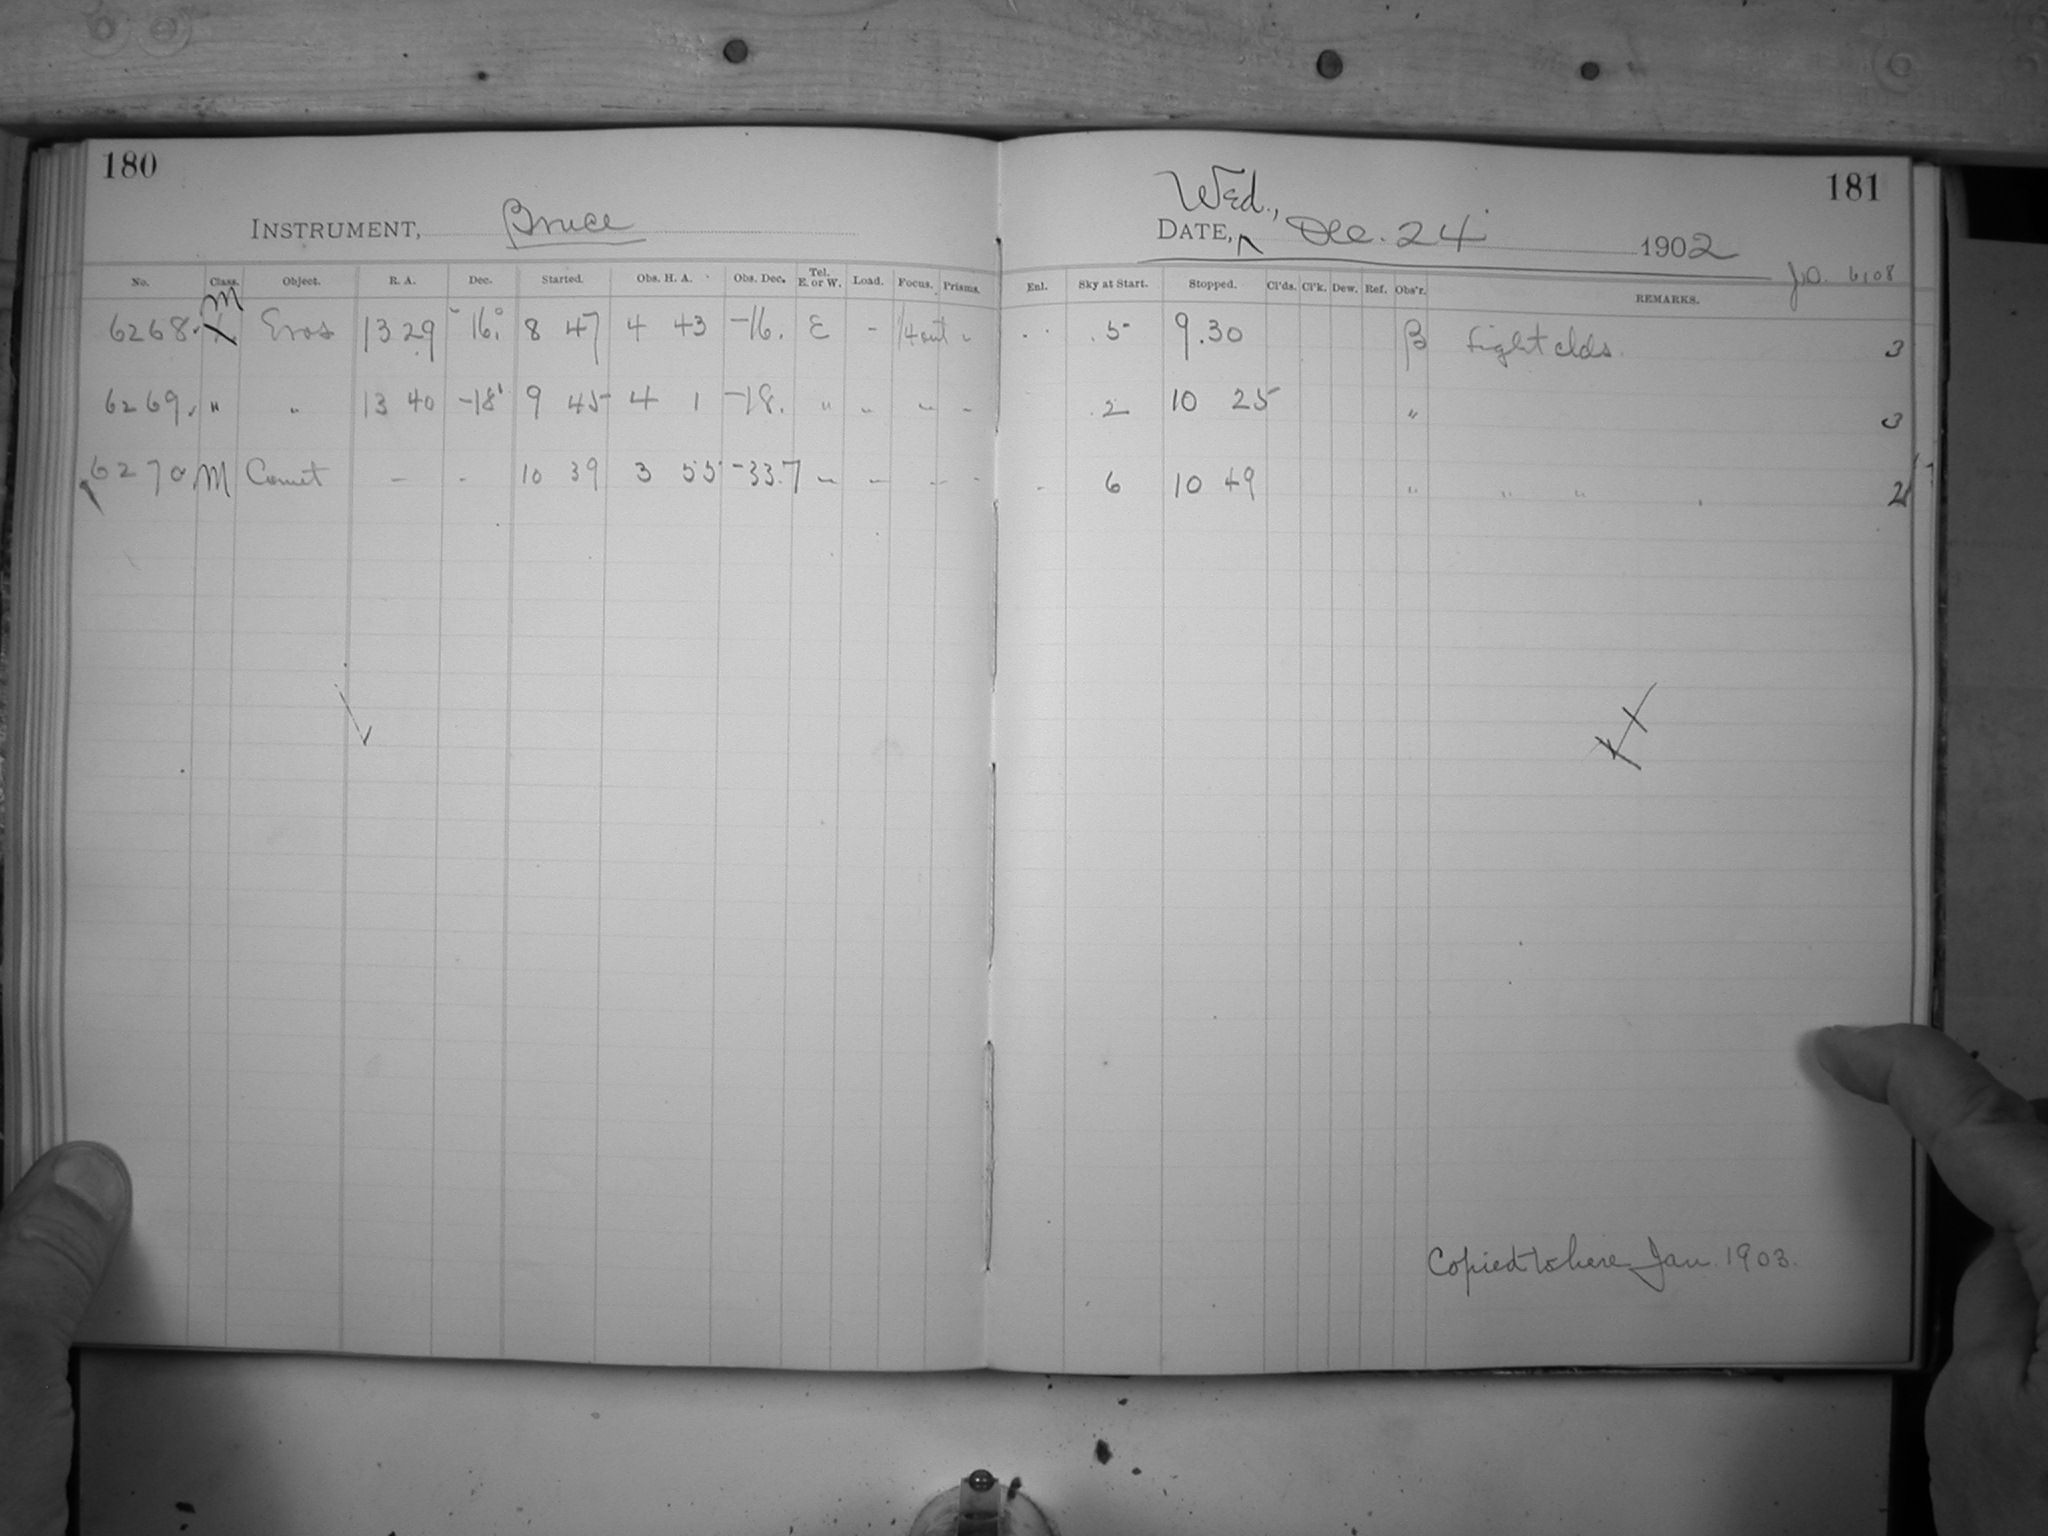 180
INSTRUMENT, Bruce
No. Class. Object. R. A. Dec. Started. Obs. H. A. Obs. Dec. Tel. E. or W. Load. Focus. Prisms.
M
6268. Eros 13 29 -16° 8 47 4 43 -16. E - 1/4 out "
6269. " " 13 40 -18° 9 45 4 1 -18. " " " "
6270. M Comet - - 10 39 3 55 -33.7 " " " "
181
Wed.,
DATE, Dec. 24 1902
J.D. 6108
Enl. Sky at Start. Stopped. Cl'ds. Cl'k. Dew. Ref. Obs'r. REMARKS.
5 9.30 β Light clds. 3
2 10 25 " 3
- 6 10 49 " " " 2
Copied to here Jan. 1903.